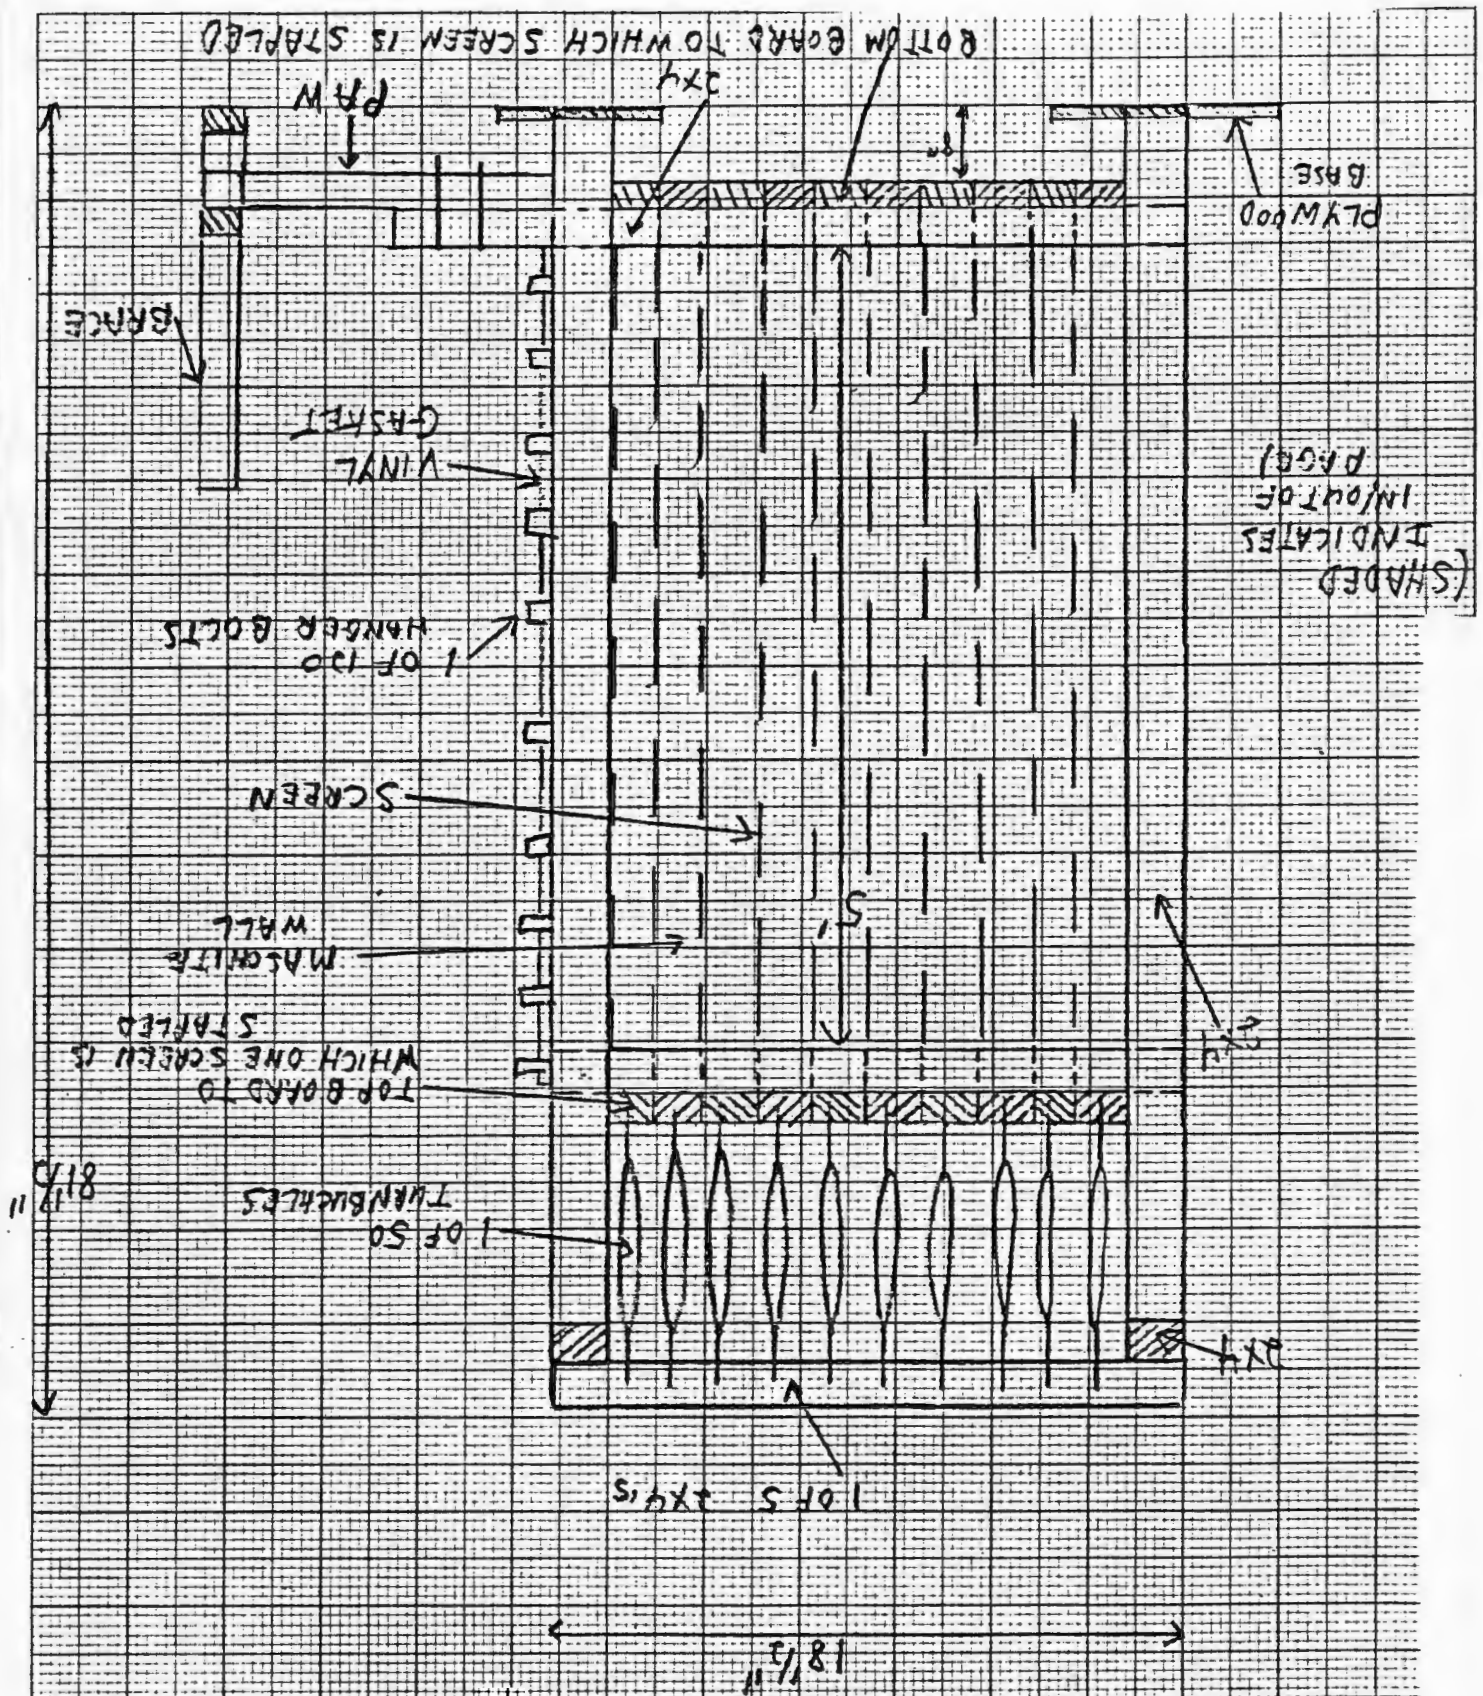 18 1/2"
1 OF 5 2X4'S
2X4
1 OF 50
TURNBUCKLES
81 1/2"
TOP BOARD TO
WHICH ONE SCREEN IS
STAPLED
2X4
MASONITE
WALL
5'
SCREEN
1 OF
HANGER BOLTS
(SHADED
INDICATES
IN/OUT OF
PAGE)
VINYL
GASKET
BRACE
PLYWOOD
BASE
8"
PAW
2X4
BOTTOM BOARD TO WHICH SCREEN IS STAPLED